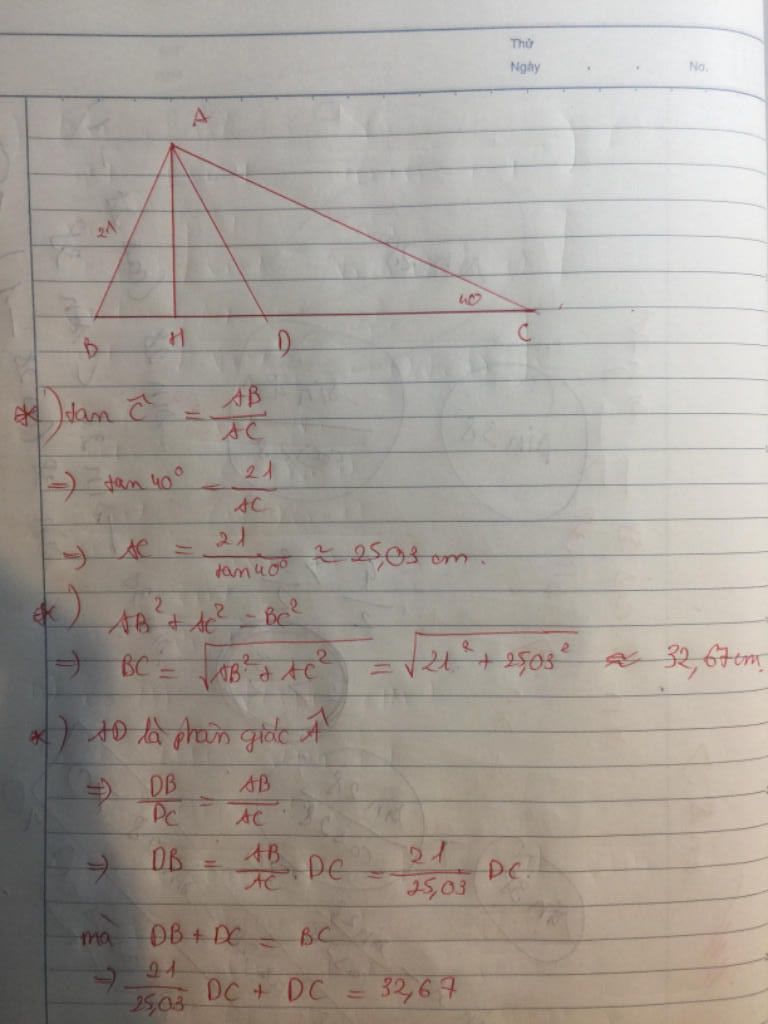 Thứ
Ngày . . No.
A
21
40°
B H D C
*) tan Ĉ = AB/AC
=) tan 40° = 21/AC
=) AC = 21/tan40° ≈ 25,03 cm.
*) AB² + AC² = BC²
=) BC = √(AB² + AC²) = √(21² + 25,03²) ≈ 32,67cm.
*) AD là phân giác Â
=) DB/DC = AB/AC.
=) DB = AB/AC . DC = 21/25,03 DC.
mà DB + DC = BC
=) 21/25,03 DC + DC = 32,67